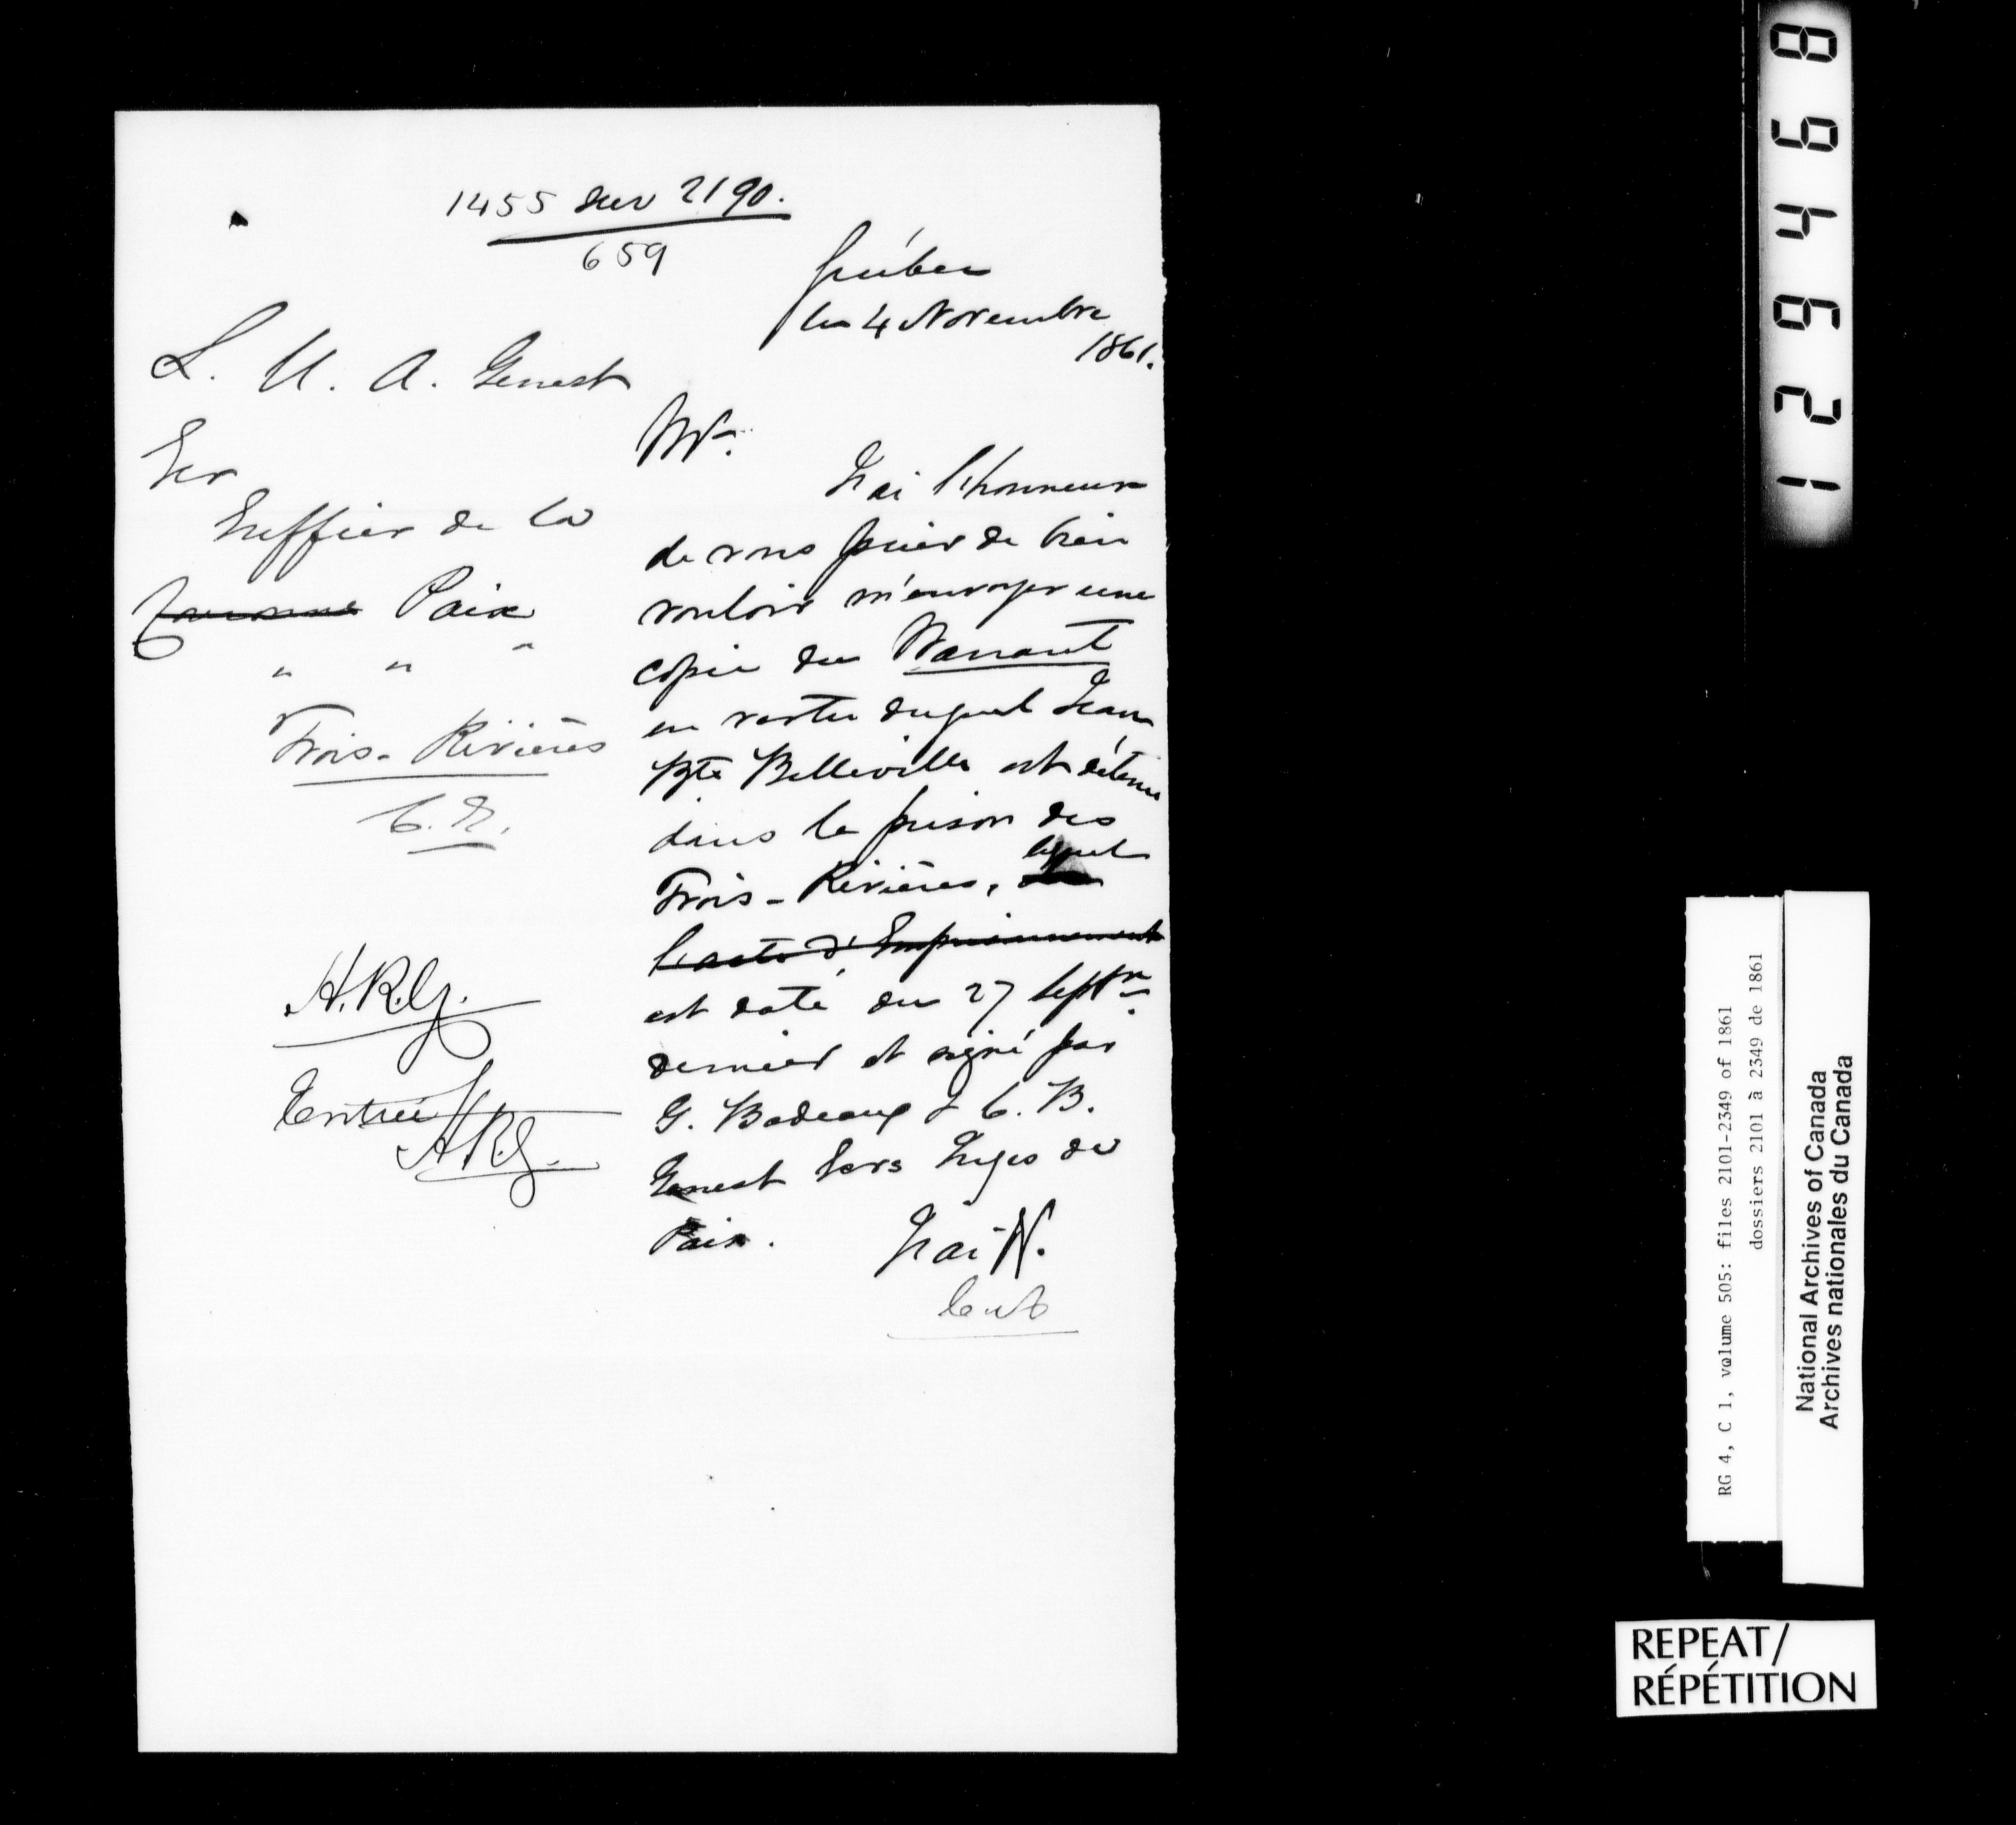 1455 sur 2190.
659
Québec
le 4 Novembre
1861.
L. U. A. Genest
Ecr
Greffier de la
Couronne Paix
" " "
Trois-Rivières
C. E.
A.R.G.
Entrée
A.R.G.
Mr.
J'ai l'honneur
de vous prier de bien
vouloir m'envoyer une
copie du Warrant
en vertu duquel Jean
Bte Belleville est détenu
dans la prison des
lequel
Trois-Rivières,
l'acte d'Emprisonnement
est daté du 27 Septre
dernier et signé par
G. Badeaux & C. B.
Genest Ecrs Juges de
Paix.
J'ai l'H.
129468
RG 4, C 1, volume 505: files 2101-2349 of 1861
dossiers 2101 à 2349 de 1861
National Archives of Canada
Archives nationales du Canada
REPEAT/
RÉPÉTITION